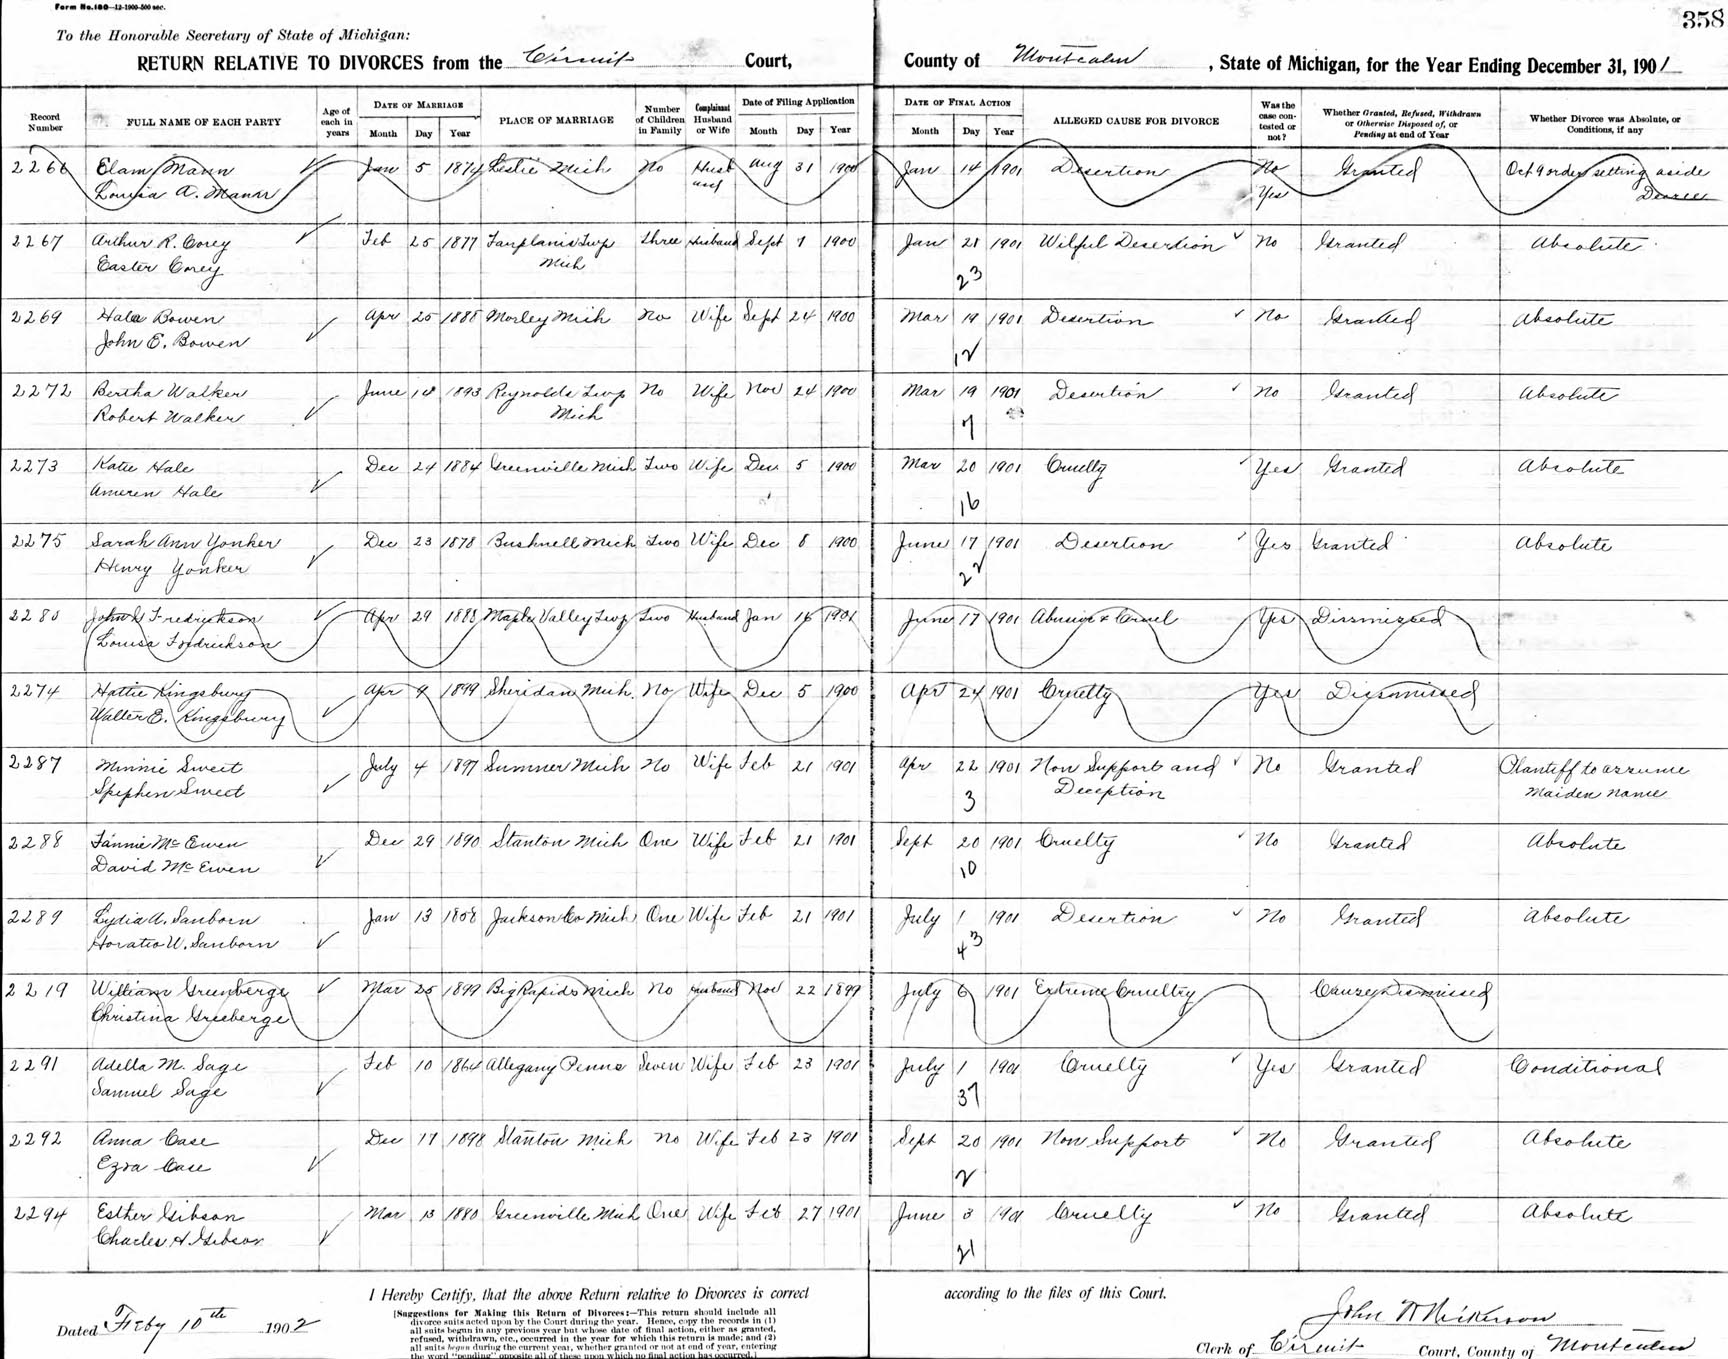 Form No. 180—12-1900-500 sec.
358
To the Honorable Secretary of State of Michigan:
RETURN RELATIVE TO DIVORCES from the Circuit Court, County of Montcalm, State of Michigan, for the Year Ending December 31, 1901
Record Number | FULL NAME OF EACH PARTY | Age of each in years | DATE OF MARRIAGE Month Day Year | PLACE OF MARRIAGE | Number of Children in Family | Complainant Husband or Wife | Date of Filing Application Month Day Year | DATE OF FINAL ACTION Month Day Year | ALLEGED CAUSE FOR DIVORCE | Was the case contested or not? | Whether Granted, Refused, Withdrawn or Otherwise Disposed of, or Pending at end of Year | Whether Divorce was Absolute, or Conditions, if any
2266 Elam Mann Jan 5 1874 Leslie Mich No Husband Aug 31 1900 Jan 14 1901 Desertion No Granted Oct 9 order setting aside
Louisa A. Mann Yes Decree
2267 Arthur R. Corey Feb 25 1877 Twp Three Husband Sept 7 1900 Jan 21 1901 Wilful Desertion No Granted Absolute
Easter Corey Mich 23
2269 Hala Bowen Apr 25 1888 Morley Mich No Wife Sept 24 1900 Mar 19 1901 Desertion No Granted Absolute
John E. Bowen 12
2272 Bertha Walker June 18 1893 Reynolds Twp No Wife Nov 24 1900 Mar 19 1901 Desertion No Granted Absolute
Robert Walker Mich 7
2273 Katie Hale Dec 24 1884 Greenville Mich Two Wife Dec 5 1900 Mar 20 1901 Cruelty Yes Granted Absolute
Ameren Hale 16
2275 Sarah Ann Yonker Dec 23 1878 Bushnell Mich Two Wife Dec 8 1900 June 17 1901 Desertion Yes Granted Absolute
Henry Yonker 22
2280 John Fredrickson Apr 29 1888 Maple Valley Twp Two Husband Jan 16 1901 June 17 1901 Abusive & Cruel Yes Dismissed
Louisa Fredrickson
2274 Hattie Kingsbury Apr 9 1899 Sheridan Mich. No Wife Dec 5 1900 Apr 24 1901 Cruelty Yes Dismissed
Walter E. Kingsbury
2287 Minnie Sweet July 4 1897 Sumner Mich No Wife Feb 21 1901 Apr 22 1901 Non Support and No Granted Plantiff to assume
Spephen Sweet 3 Deception Maiden name
2288 Fannie McEwen Dec 29 1890 Stanton Mich One Wife Feb 21 1901 Sept 20 1901 Cruelty No Granted Absolute
David McEwen 10
2289 Lydia A. Sanborn Jan 13 1858 Jackson Co Mich One Wife Feb 21 1901 July 1 1901 Desertion No Granted Absolute
Horatio W. Sanborn 43
2219 William Greenberge Mar 25 1899 Big Rapids Mich No Husband Nov 22 1899 July 6 1901 Extreme Crueltry Cause Dismissed
Christina Greeberge
2291 Adella M. Sage Feb 10 1864 Allegany Penna Seven Wife Feb 23 1901 July 1 1901 Cruelty Yes Granted Conditional
Samuel Sage 37
2292 Anna Case Dec 17 1898 Stanton Mich No Wife Feb 23 1901 Sept 20 1901 Non Support No Granted Absolute
Ezra Case 2
2294 Esther Gibson Mar 13 1880 Greenville Mich One Wife Feb 27 1901 June 3 1901 Cruelty No Granted Absolute
Charles H Gibson 21
I Hereby Certify, that the above Return relative to Divorces is correct according to the files of this Court.
Dated Feby 10th 1902
[Suggestions for Making this Return of Divorces:—This return should include all
divorce suits acted upon by the Court during the year. Hence, copy the records in (1)
all suits begun in any previous year but whose date of final action, either as granted,
refused, withdrawn, etc., occurred in the year for which this return is made; and (2)
all suits begun during the current year, whether granted or not at end of year, entering
the word "pending" opposite all of these upon which no final action has occurred.]
John W Nickerson
Clerk of Circuit Court, County of Montcalm